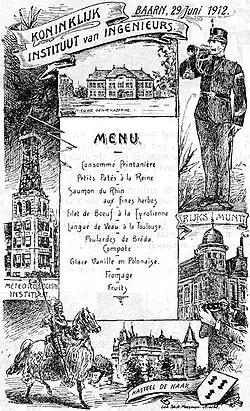 KONINKLIJK
INSTITUUT van INGENIEURS
BAARN, 29 Juni 1912.
MENU.
Consommé Printanière
Petits Patés à la Reine
Saumon du Rhin
aux fines herbes
Filet de Boeuf à la Tyrolienne
Langue de Veau à la Toulouse.
Poulardes de Bréda.
Compote
Glace Vanille en Polonaise.
Fromage
Fruits
RIJKS MUNT
INSTITUUT
KASTEEL DE HAAR